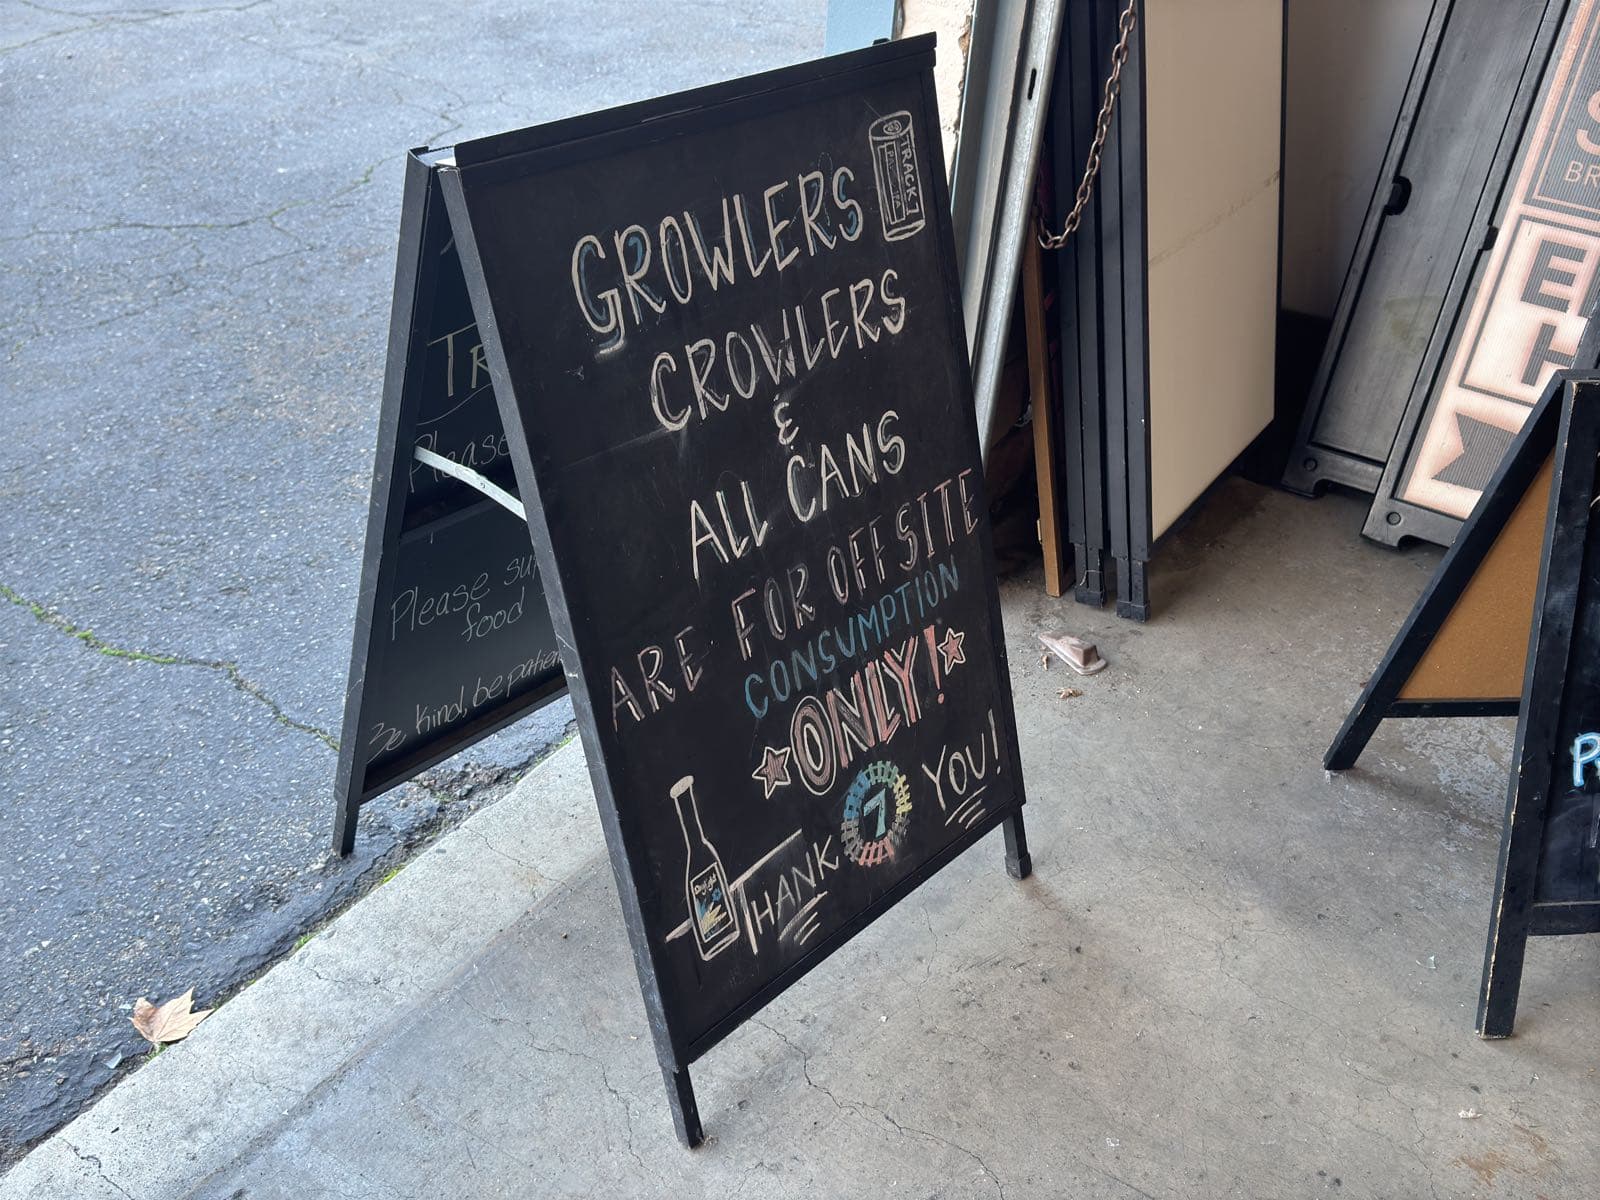 GROWLERS
CROWLERS
&
ALL CANS
ARE FOR OFFSITE
CONSUMPTION
ONLY!
THANK 7 YOU!
TRACK 7
Please
Please
food
Be kind, be